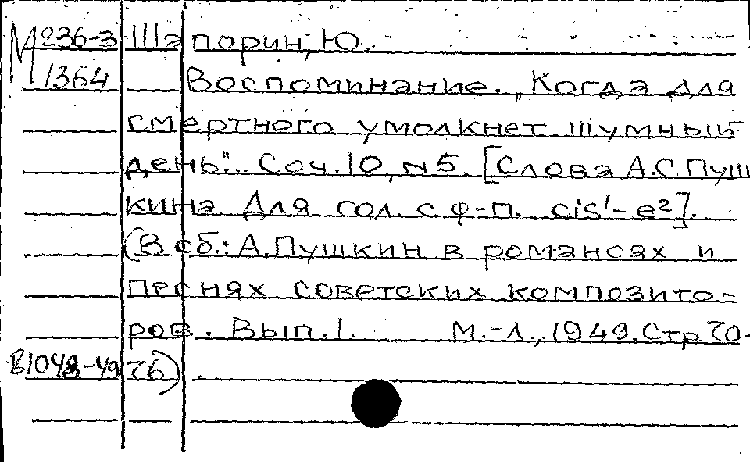 М 236-3 Шапорин, Ю.
1364 Воспоминание. „Когда для
смертного умолкнет шумный
день"... Соч. 10, №5. [Слова А.С.Пуш
кина. Для гол. с ф-п. cis¹-e²].
(В сб.: А.Пушкин в романсах и
песнях советских композито-
ров. Вып. 1. М.-Л., 1949. Стр. 70-
В1048-49 76)